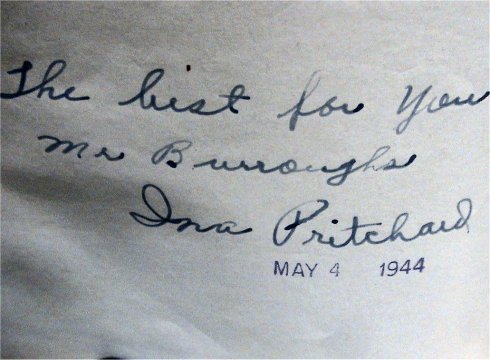 The best for You
Mr Burroughs
Ina Pritchard
MAY 4 1944